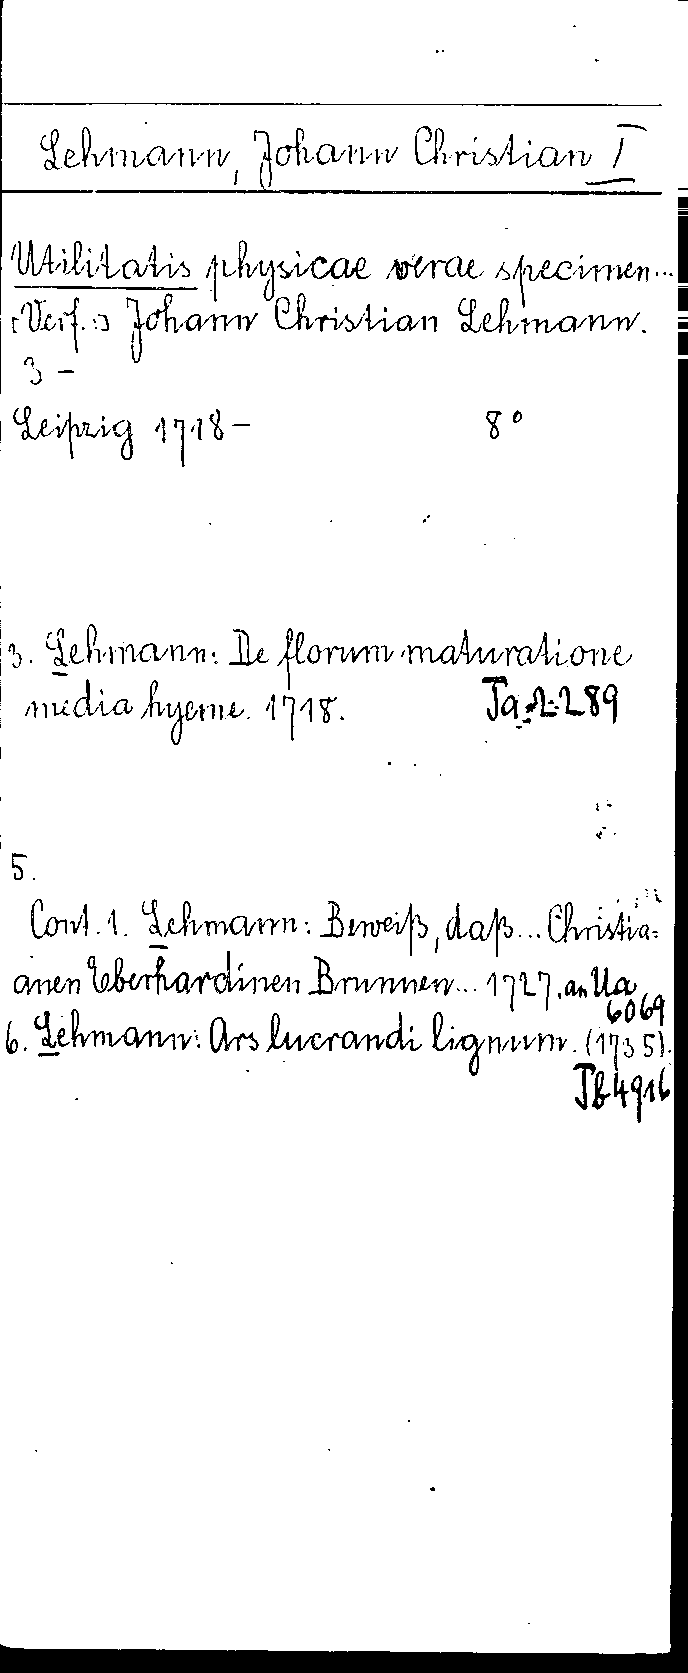 Lehmann, Johann Christian I
Utilitatis physicae verae specimen...
[Verf.:] Johann Christian Lehmann.
3 –
Leipzig 1718 – 8°
3. Lehmann: De florum maturatione
media hyeme. 1718. Ja 2289
5.
Cont. 1. Lehmann: Beweiß, daß... Christia=
anen Eberhardinen Brunnen... 1727. an Ua
6069
6. Lehmann: Ars lucrandi lignum. (1735).
Jb 4916